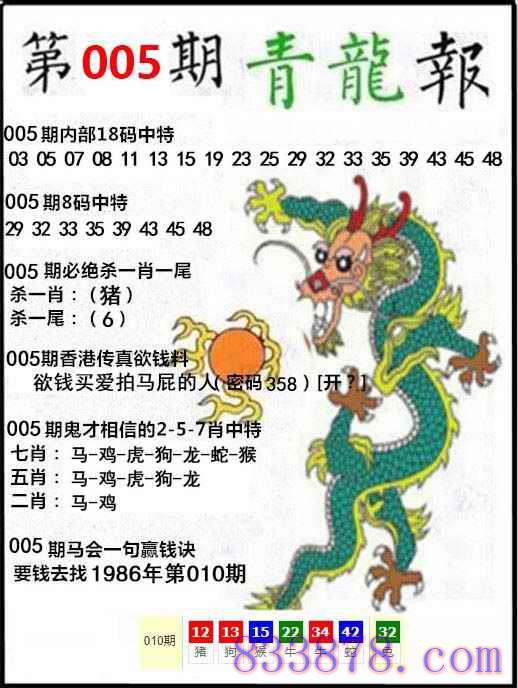 第005期青龍報
005期内部18码中特
03 05 07 08 11 13 15 19 23 25 29 32 33 35 39 43 45 48
005期8码中特
29 32 33 35 39 43 45 48
005期必绝杀一肖一尾
杀一肖：（猪）
杀一尾：（6）
005期香港传真欲钱料
欲钱买爱拍马屁的人（密码358）[开？]
005期鬼才相信的2-5-7肖中特
七肖：马-鸡-虎-狗-龙-蛇-猴
五肖：马-鸡-虎-狗-龙
二肖：马-鸡
005期马会一句赢钱诀
要钱去找1986年第010期
010期 12 13 15 22 34 42 32
猪 狗 猴 牛 牛 蛇 兔
833878.com